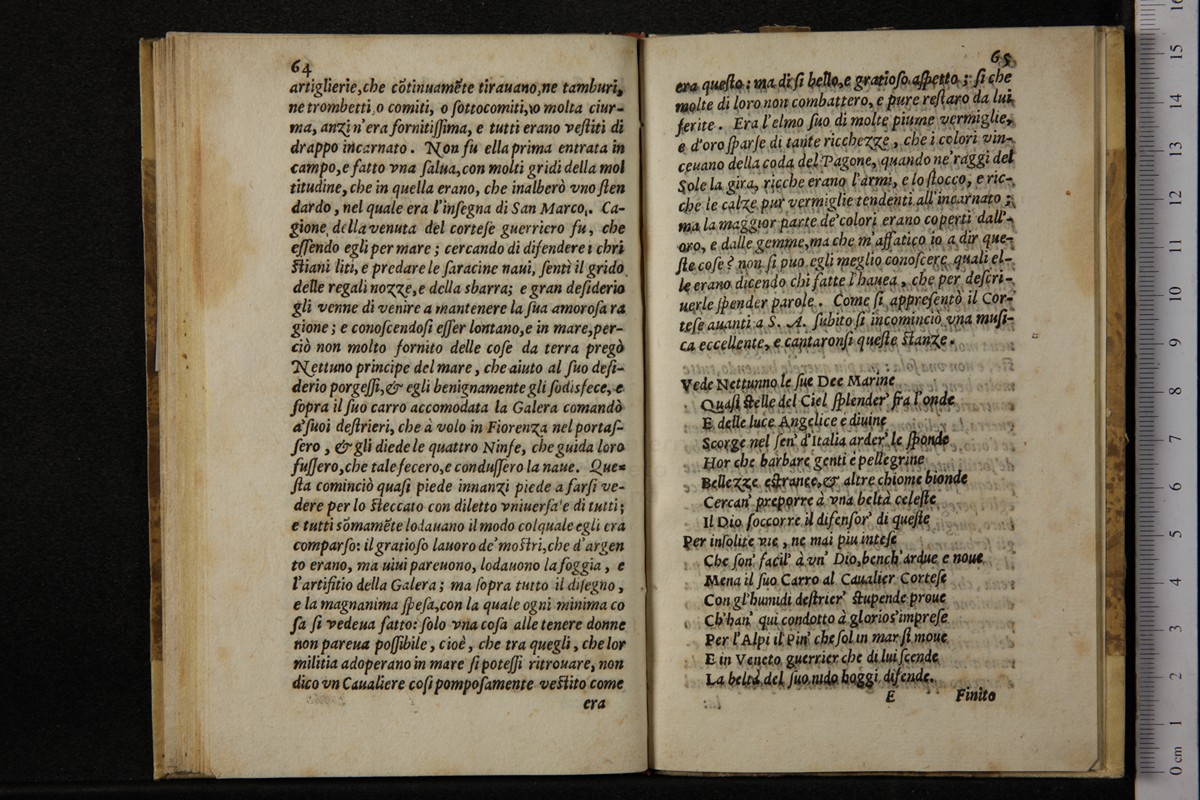 64
artiglierie, che cõtinuamẽte tirauano, ne tamburi,
ne trombetti o comiti, o sottocomiti, o molta ciur-
ma, anzi n'era fornitissima, e tutti erano vestiti di
drappo incarnato. Non fu ella prima entrata in
campo, e fatto vna salua, con molti gridi della mol
titudine, che in quella erano, che inalberò vno sten
dardo, nel quale era l'insegna di San Marco. Ca-
gione della venuta del cortese guerriero fu, che
essendo egli per mare; cercando di difendere i chri
stiani liti, e predare le saracine naui, sentì il grido
delle regali nozze, e della sbarra; e gran desiderio
gli venne di venire a mantenere la sua amorosa ra
gione; e conoscendosi esser lontano, e in mare, per-
ciò non molto fornito delle cose da terra pregò
Nettuno principe del mare, che aiuto al suo desi-
derio porgessi, & egli benignamente gli sodisfece, e
sopra il suo carro accomodata la Galera comandò
a' suoi destrieri, che à volo in Fiorenza nel portas-
sero, & gli diede le quattro Ninfe, che guida loro
fussero, che tale fecero, e condussero la naue. Que-
sta cominciò quasi piede innanzi piede a farsi ve-
dere per lo steccato con diletto vniuersa'e di tutti;
e tutti sõmamẽte lodauano il modo col quale egli era
comparso: il gratioso lauoro de' mostri, che d'argen
to erano, ma uiui pareuono, lodauono la foggia, e
l'artifitio della Galera; ma sopra tutto il disegno,
e la magnanima spesa, con la quale ogni minima co
sa si vedeua fatto: solo vna cosa alle tenere donne
non pareua possibile, cioè, che tra quegli, che lor
militia adoperano in mare si potessi ritrouare, non
dico vn Caualiere cosi pomposamente vestito come
era
65
era questo: ma di si bello, e gratioso aspetto; si che
molte di loro non combattero, e pure restaro da lui
ferite. Era l'elmo suo di molte piume vermiglie,
e d'oro sparse di tante ricchezze, che i colori vin-
ceuano della coda del Pagone, quando ne' raggi del
Sole la gira, ricche erano l'armi, e lo stocco, e ric-
che le calze pur vermiglie tendenti all'incarnato;
ma la maggior parte de' colori erano coperti dall'-
oro, e dalle gemme, ma che m'affatico io a dir que-
ste cose? non si puo egli meglio conoscere quali el-
le erano dicendo chi fatte l'hauea, che per descri-
uerle spender parole. Come si appresentò il Cor-
tese auanti a S. A. subito si incominciò vna musi-
ca eccellente, e cantaronsi queste stanze.
Vede Nettunno le sue Dee Marine
Quasi stelle del Ciel splender' fra l'onde
E delle luce Angelice e diuine
Scorge nel sen' d'Italia arder' le sponde
Hor che barbare genti e pellegrine
Bellezze estranee, & altre chiome bionde
Cercan' preporre à vna beltà celeste
Il Dio soccorre il difensor' di queste
Per insolite vie, ne mai piu intese
Che son' facil' à vn' Dio, bench'ardue e noue
Mena il suo Carro al Caualier Cortese
Con gl'humidi destrier' stupende proue
Ch'han' qui condotto à glorios' imprese
Per l'Alpi il Pin' che sol in mar si moue
E in Veneto guerrier che di lui scende
La beltà del suo nido hoggi difende.
E
Finito